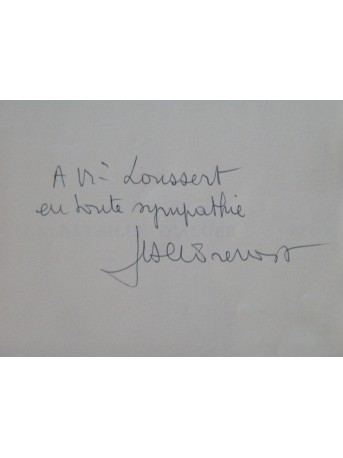 A Mr Loussert
en toute sympathie